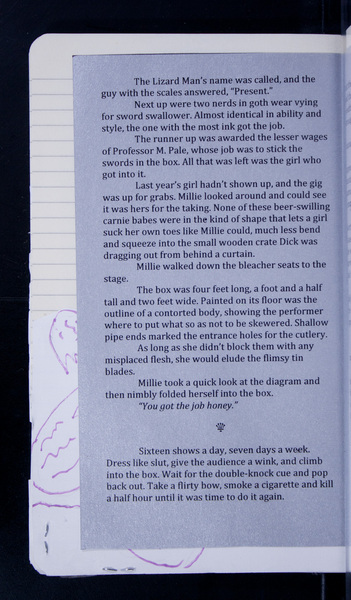 The Lizard Man's name was called, and the
guy with the scales answered, "Present."
Next up were two nerds in goth wear vying
for sword swallower. Almost identical in ability and
style, the one with the most ink got the job.
The runner up was awarded the lesser wages
of Professor M. Pale, whose job was to stick the
swords in the box. All that was left was the girl who
got into it.
Last year's girl hadn't shown up, and the gig
was up for grabs. Millie looked around and could see
it was hers for the taking. None of these beer-swilling
carnie babes were in the kind of shape that lets a girl
suck her own toes like Millie could, much less bend
and squeeze into the small wooden crate Dick was
dragging out from behind a curtain.
Millie walked down the bleacher seats to the
stage.
The box was four feet long, a foot and a half
tall and two feet wide. Painted on its floor was the
outline of a contorted body, showing the performer
where to put what so as not to be skewered. Shallow
pipe ends marked the entrance holes for the cutlery.
As long as she didn't block them with any
misplaced flesh, she would elude the flimsy tin
blades.
Millie took a quick look at the diagram and
then nimbly folded herself into the box.
"You got the job honey."
Sixteen shows a day, seven days a week.
Dress like slut, give the audience a wink, and climb
into the box. Wait for the double-knock cue and pop
back out. Take a flirty bow, smoke a cigarette and kill
a half hour until it was time to do it again.